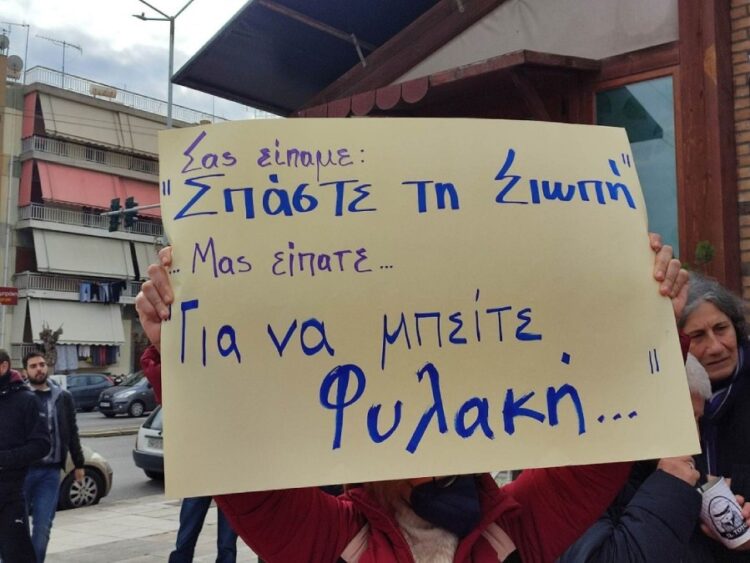 Σας είπαμε:
"Σπάστε τη Σιωπή"
... Μας είπατε...
Για να μπείτε
Φυλακή... "